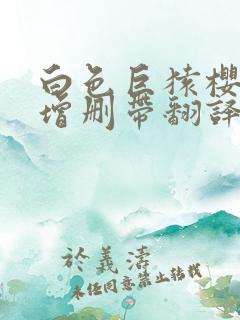 白色巨猿樱
增删带翻译
於義濤
未经同意禁止转载